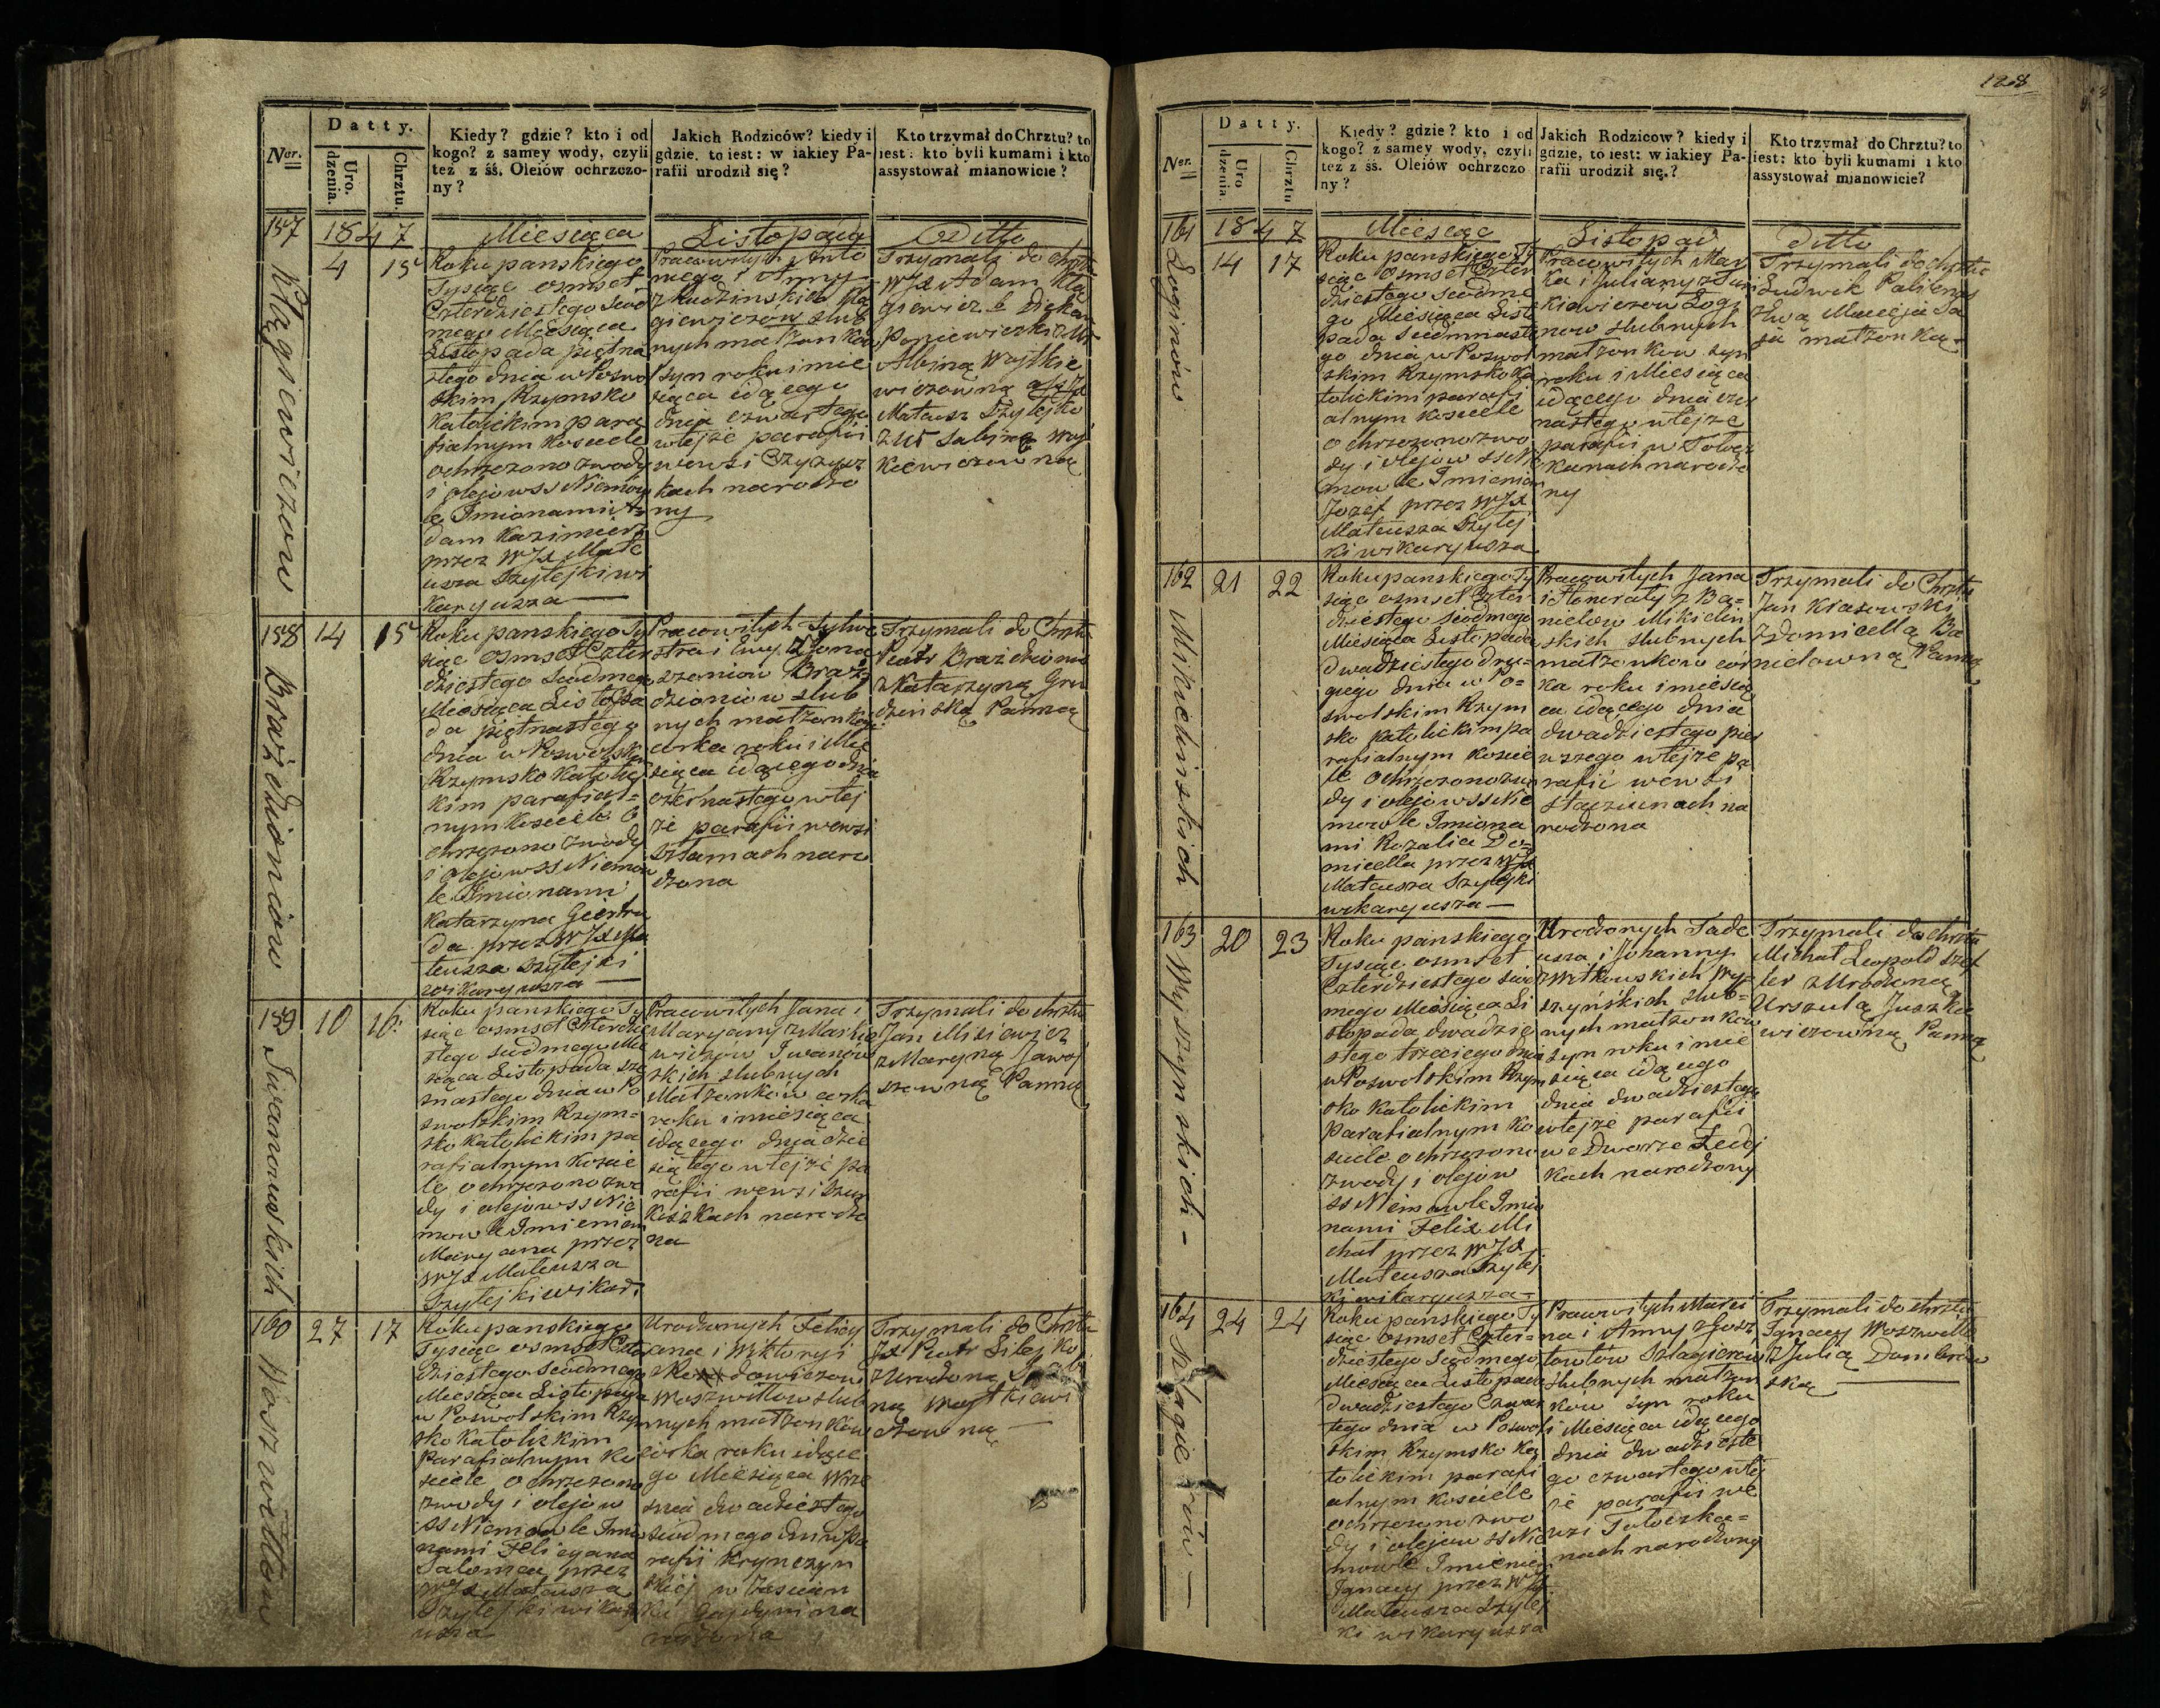 128
Datty.
Ner.
Uro.
dzenia.
Chrztu.
Kiedy? gdzie? kto i od
kogo? z samey wody, czyli
tez z śś. Oleiów ochrzczo-
ny?
Jakich Rodziców? kiedy i
gdzie, to iest: w iakiey Pa-
rafii urodził się?
Kto trzymał do Chrztu? to
iest: kto byli kumami i kto
assystował mianowicie?
157
1847
Miesiąca
Listopada
Ditto
4
15
Klągiewiczow
Roku panskiego
Tysiąc osmset
Czterdziestego Siod
mego Miesiąca
Listopada piętna
stego dnia w Poswo
skim Rzymsko
Katolickim para
fialnym Kosciele
ochrzczono zwody
i olejow SS Niemow
le Imionami A
dam Kazimierz
przez WJX Mate
usza Szylejki wi
karyusza
Pracowitych Anto
niego i Anny
z Rudzinskich Klą
giewiczow slub
nych małzonkow
syn roku i mie
siąca idącego
dnia czwartego
wtejże parafii
wewsi
kach narodzo
ny
Trzymali do Chrztu
WJX Adam Klą
giewicz
Poniewiezki z Ur
Albiną Woytkie
wiczowną
Mateusz Szylejko
z Ur Sabiną Woy
kiewiczowną
158
14
15
Brażdzioniow
Roku panskiego Ty
siąc osmset Czter
dziestego Siodmego
Miesiąca Listopa
da piętnastego
dnia w Poswolskim
Rzymsko Katolic
kim parafial=
nym Kosciele o
chrzczono zwody
i olejow SS Niemow
le Imionami
Katarzyna Giertru
da przez WJX Ma
teusza Szylejki
wikaryusza
Pracowitych Sylwe
stra i Ewy
szoniow Braż
dzioniow slub
nych małzonkow
corka roku i Mie
siąca idącego dnia
czternastego wtej
że parafii wewsi
Sztamach naro
dzona
Trzymali do Chrztu
Piotr Brażdzionis
z Katarzyną Gru
dzinską Panną
159
10
16
Iwanowskich
Roku panskiego Ty
siąc osmset Czterdzie
stego siodmego Mie
siąca Listopada sze
snastego dnia w Po
swolskim Rzym=
sko Katolickim pa
rafialnym Koscie
le ochrzczono zwo
dy i olejow SS Nie
mowle Imieniem
Maryana przez
WJX Mateusza
Szylejki wikar.
Pracowitych Jana i
Maryanny z Maskie
wiczow Iwanow
skich slubnych
Małzonków corka
roku i miesiąca
idącego dnia dzie
siątego wtejże pa
rafii wewsi Szur
kiszkach narodzo
na
Trzymali do chrztu
Jan Misiewicz
z Maryną Jawoj
szowną Panną
160
27
17
Woszwiłłow
Roku panskiego
Tysiąc osmset Czter
dziestego Siodmego
Miesiąca Listopada
w Poswolskim Rzym
sko Katolickim
Parafialnym Ko
sciele ochrzczono
zwody i olejow
SS Niemowle Imio
nami Felicyana
Salomea przez
WJX Mateusza
Szylejki wikary
usza
Urodzonych Felicy
ana i Wiktoryi
z
Woszwiłłow slub
nych małzonków
corka roku idące
go Miesiąca Wrze
snia dwudziestego
siodmego dnia w Pa
rafii Krynczyn
skiej w Zascian
ku Gajdyni na
rodzona
Trzymali do Chrztu
JX Piotr Silejko
z Urodzoną
ną Woytkiewi
czowną
Datty.
Ner.
Uro
dzenia.
Chrztu
Kiedy? gdzie? kto i od
kogo? z samey wody, czyli
też z śś. Oleiów ochrzczo
ny?
Jakich Rodzicow? kiedy i
gdzie, to iest: w iakiey Pa-
rafii urodził się.?
Kto trzymał do Chrztu? to
iest: kto byli kumami i kto
assystował mianowicie?
161
1847
Miesiąc
Listopad
Ditto
14
17
Łoginów
Roku panskiego Ty
siąc osmset Czter
dziestego siodme
go Miesiąca Listo
pada siedmnaste
go dnia w Poswol
skim Rzymsko Ka
tolickim parafi
alnym Kosciele
ochrzczono zwo
dy i olejow SS Nie
mowle Imieniem
Jozef przez WJX
Mateusza Szylej
ki wikaryusza
Pracowitych Mar
ka i Julianny z Jur
kiewiczow Łogi
now slubnych
małzonkow syn
roku i Miesiąca
idącego dnia czter
nastego wtejże
parafii w Tołocz
kanach narodzo
ny
Trzymali do chrztu
Ludwik Paliłonis
z Ewą Macieja Sa
ja małzonką
162
21
22
Mikiclinskich
Roku panskiego Ty
siąc osmset Czter
dziestego siodmego
Miesiąca Listopada
dwadziestego dru=
giego dnia w Po=
swolskim Rzym
sko Katolickim pa
rafialnym Koscie
le ochrzczono zwo
dy i olejow SS Nie
mowle Imiona
mi Rozalia Do
micella przez WJX
Mateusza Szylejki
wikaryusza
Pracowitych Jana
i Honoraty z Ba=
nielow Mikiclin
skich slubnych
małzonkow cor
ka roku i miesią
ca idącego dnia
dwadziestego pier
wszego wtejże pa
rafii wewsi
Stacziunach na
rodzona
Trzymali do Chrztu
Jan Krasowski
z Domicellą Ba
nielowną Panną
163
20
23
Wyszynskich
Roku panskiego
Tysiąc osmset
Czterdziestego siod
mego Miesiąca Li
stopada dwadzie
stego trzeciego dnia
w Poswolskim Rzym
sko Katolickim
Parafialnym Ko
sciele ochrzczono
zwody i olejow
SS Niemowle Imio
nami Felix Mi
chał przez WJX
Mateusza Szylej
ki wikaryusza
Urodzonych Tade
usza i Johanny
z Witkowskich Wy
szyńskich slub=
nych małzonkow
syn roku i mie
siąca idącego
dnia dwadziestego
wtejże parafii
we Dworze Ledej
kach narodzony
Trzymali do chrztu
Michał Leopold Szef
ler z Urodzoną
Urszulą Juszkie
wiczowną Panną
164
24
24
Szlagierów
Roku panskiego Ty
siąc osmset Czter=
dziestego Siodmego
Miesiąca Listopada
dwadziestego Czwar
tego dnia w Poswol
skim Rzymsko Ka
tolickim parafi
alnym Kosciele
ochrzczono zwo
dy i olejow SS Nie
mowle Imieniem
Ignacy przez WJX
Mateusza Szylej
ki wikaryusza
Pracowitych Marci
na i Anny z Gosz
towtów Szlagierow
slubnych małzon
kow syn roku
i Miesiąca idącego
dnia dwadzieste
go czwartego wtej
że parafii we
wsi Tołoczka=
nach narodzony
Trzymali do chrztu
Ignacy Woszwiłło
z Julią Dombrow
ską